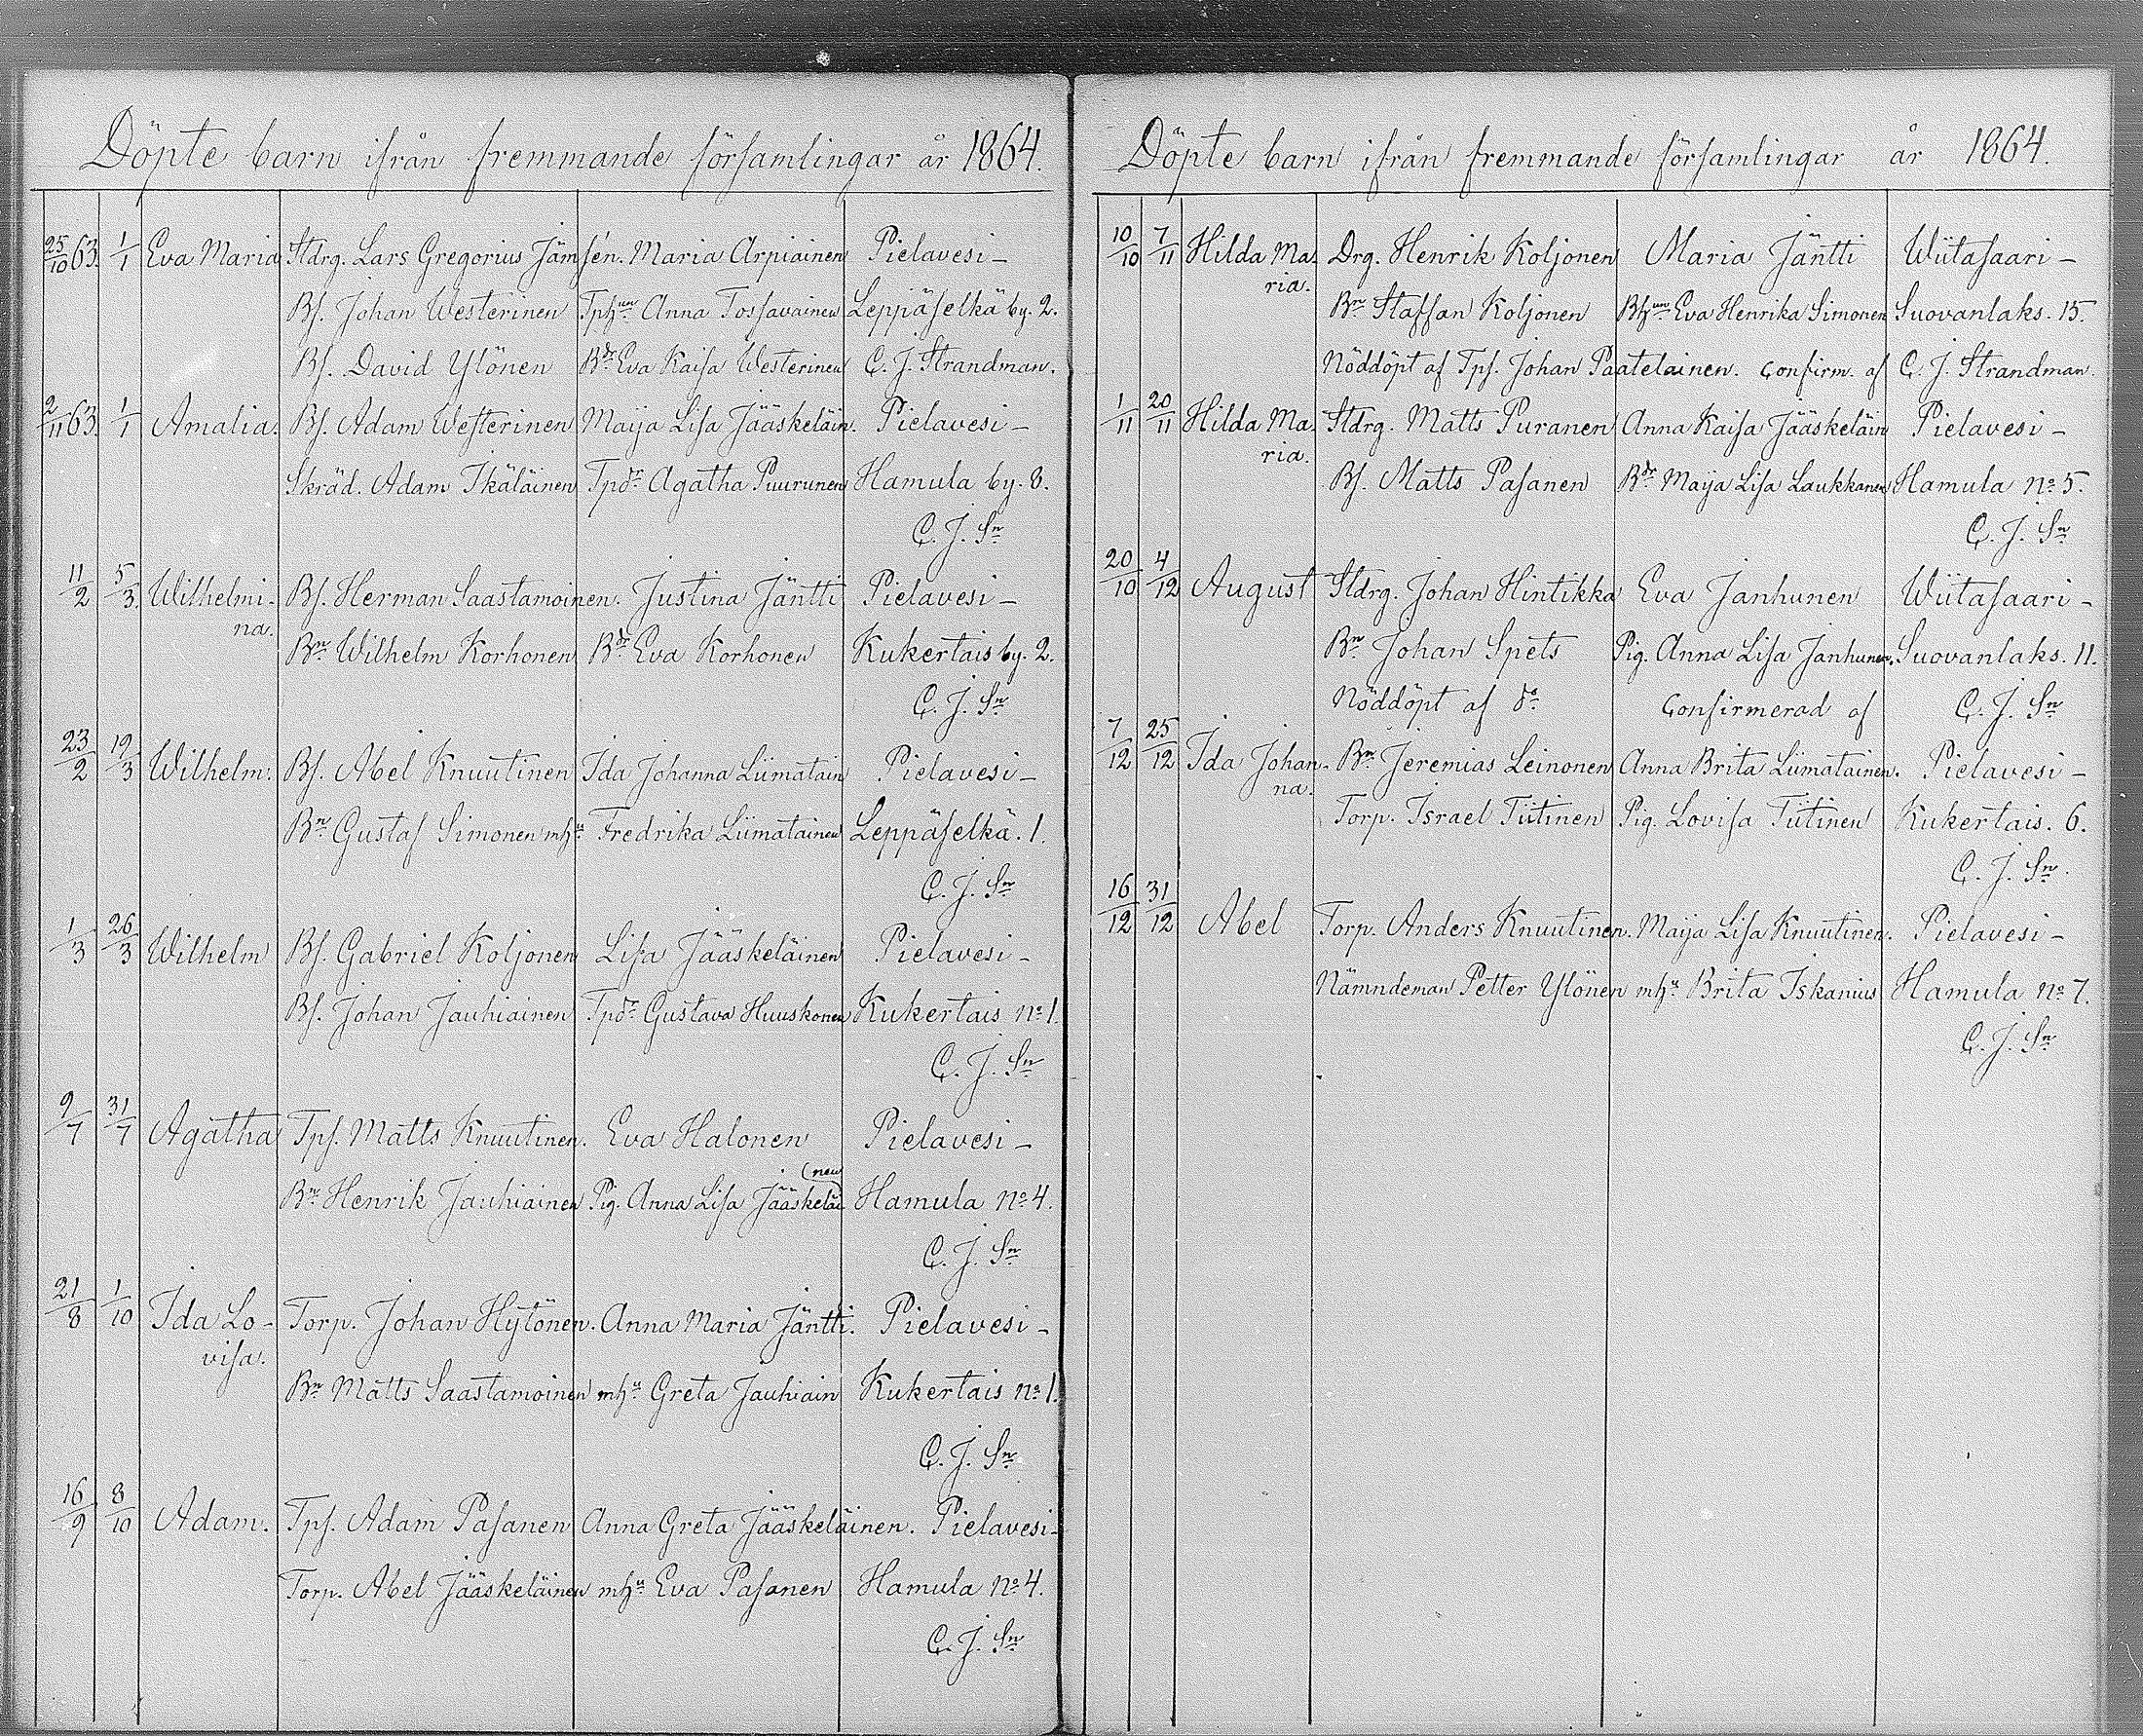 Döpte barn ifrån fremmande församlingar år 1864.
25/10 63. 1/1 Eva Maria Stdrg. Lars Gregorius Jämsén. Maria Arpiainen Pielavesi –
Bs. Johan Westerinen Tphun Anna Tossavainen Leppäselkä by. 2.
Bs. David Ylönen Bdr Eva Kaisa Westerinen C. J. Strandman.
2/11 63. 1/1 Amalia. Bs. Adam Westerinen Maija Lisa Jääskeläin. Pielavesi –
Skräd. Adam Ikäläinen Tpdr Agatha Puurunen Hamula by. 8.
C. J. Sn
11/2 5/3. Wilhelmi- Bs. Herman Saastamoinen. Justina Jäntti Pielavesi –
na.
Bn Wilhelm Korhonen Bdr Eva Korhonen Kukertais by. 2.
C. J. Sn
23/2 19/3 Wilhelm. Bs. Abel Knuutinen Ida Johanna Liimatain Pielavesi –
Bn Gustaf Simonen mhu Fredrika Liimatainen Leppäselkä. 1.
C. J. Sn
1/3 26/3 Wilhelm Bs. Gabriel Koljonen Lisa Jääskeläinen Pielavesi –
Bs. Johan Jauhiainen Tpdr Gustava Huuskonen Kukertais No 1.
C. J. Sn
9/7 31/7 Agatha Tps. Matts Knuutinen. Eva Halonen Pielavesi –
(nen
Bn Henrik Jauhiainen Pig. Anna Lisa Jääskeläi Hamula No 4.
C. J. Sn
21/8 1/10 Ida Lo- Torp. Johan Hytönen. Anna Maria Jäntti. Pielavesi –
visa.
Bn Matts Saastamoinen mhu Greta Jauhiain Kukertais No 1.
C. J. Sn
16/9 8/10 Adam. Tps. Adam Pasanen Anna Greta Jääskeläinen. Pielavesi –
Torp. Abel Jääskeläinen mhu Eva Pasanen Hamula No 4.
C. J. Sn
Döpte barn ifrån fremmande församlingar år 1864.
10/10 7/11 Hilda Ma- Drg. Henrik Koljonen Maria Jäntti Wiitasaari –
ria.
Bn Staffan Koljonen Bhun Eva Henrika Simonen Suovanlaks. 15.
Nöddöpt af Tps. Johan Paatelainen. Confirm. af C. J. Strandman.
1/11 20/11 Hilda Ma- Stdrg. Matts Puranen Anna Kaisa Jääskeläin Pielavesi –
ria.
Bs. Matts Pasanen Bdr Maija Lisa Laukkanen Hamula No 5.
C. J. Sn
20/10 4/12 August Stdrg. Johan Hintikka Eva Janhunen Wiitasaari –
Bn Johan Spets Pig. Anna Lisa Janhunen. Suovanlaks. 11.
Nöddöpt af do Confirmerad af C. J. Sn
7/12 25/12 Ida Johan- Bn Jeremias Leinonen Anna Brita Liimatainen. Pielavesi –
na.
Torp. Israel Tiitinen Pig. Lovisa Tiitinen Kukertais. 6.
C. J. Sn.
16/12 31/12 Abel Torp. Anders Knuutinen. Maija Lisa Knuutinen. Pielavesi –
Nämndeman Petter Ylönen mhu Brita Iskanius Hamula No 7.
C. J. Sn